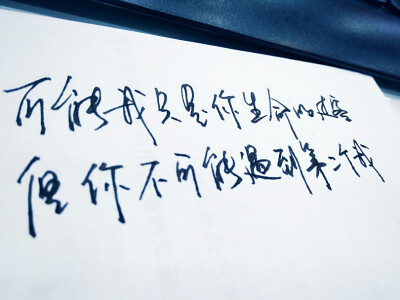 可能我只是你生命的过客
但你不可能遇到第二个我